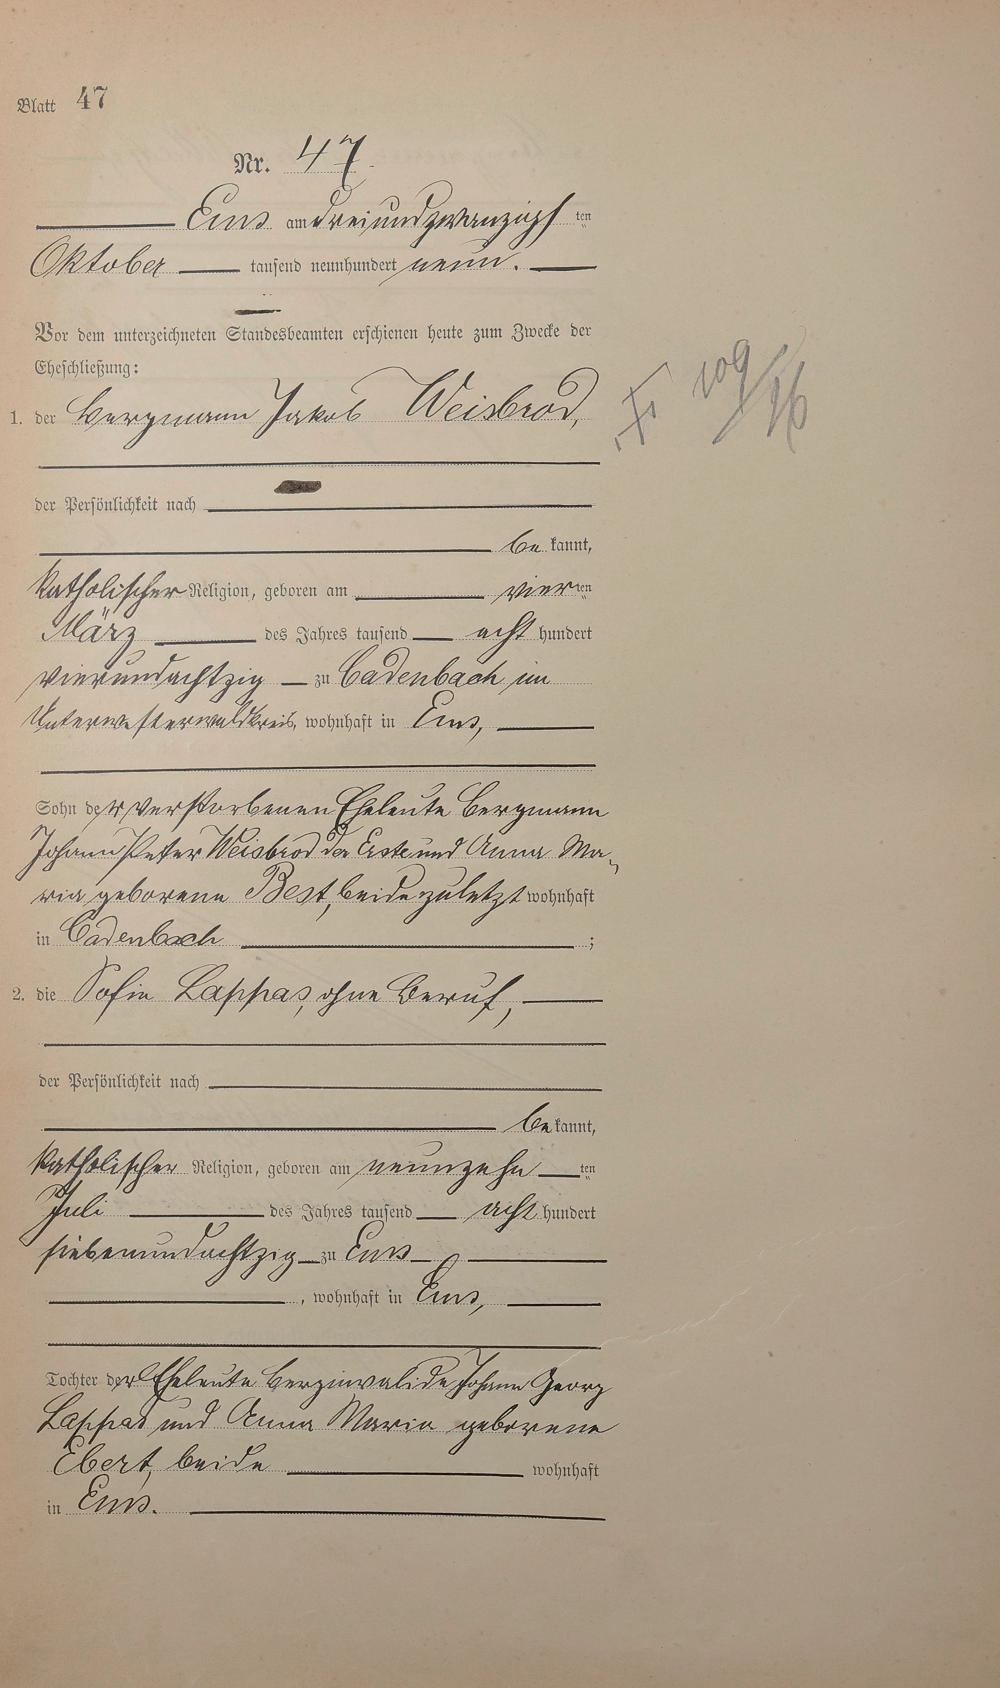 Blatt 47
Nr. 47.
Ems am dreiundzwanzigsten
Oktober tausend neunhundert neun.
Vor dem unterzeichneten Standesbeamten erschienen heute zum Zwecke der
Eheschließung:
1. der Bergmann Jakob Weisbrod,
der Persönlichkeit nach
be kannt,
katholischer Religion, geboren am vierten
März des Jahres tausend acht hundert
vierundachtzig zu Cadenbach im
Unterwesterwaldkreis, wohnhaft in Ems,
Sohn der verstorbenen Eheleute Bergmann
Johann Peter Weisbrod der Erste und Anna Ma-
ria geborene Best, beide zuletzt wohnhaft
in Cadenbach ;
2. die Sofie Lappas, ohne Beruf,
der Persönlichkeit nach
be kannt,
katholischer Religion, geboren am neunzehnten
Juli des Jahres tausend acht hundert
siebenundachtzig zu Ems
, wohnhaft in Ems,
Tochter der Eheleute Berginvalide Johann Georg
Lappas und Anna Maria geborene
Ebert, beide wohnhaft
in Ems.